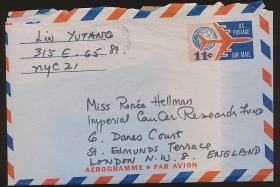 Lin Yutang
315 E. 65 St.
NYC 21
11¢
US
POSTAGE
AIR MAIL
Miss Renée Hellman
Imperial Cancer Research Fund
6. Danes Court
St. Edmunds Terrace
LONDON N.W. 8. ENGLAND
AÉROGRAMME • PAR AVION